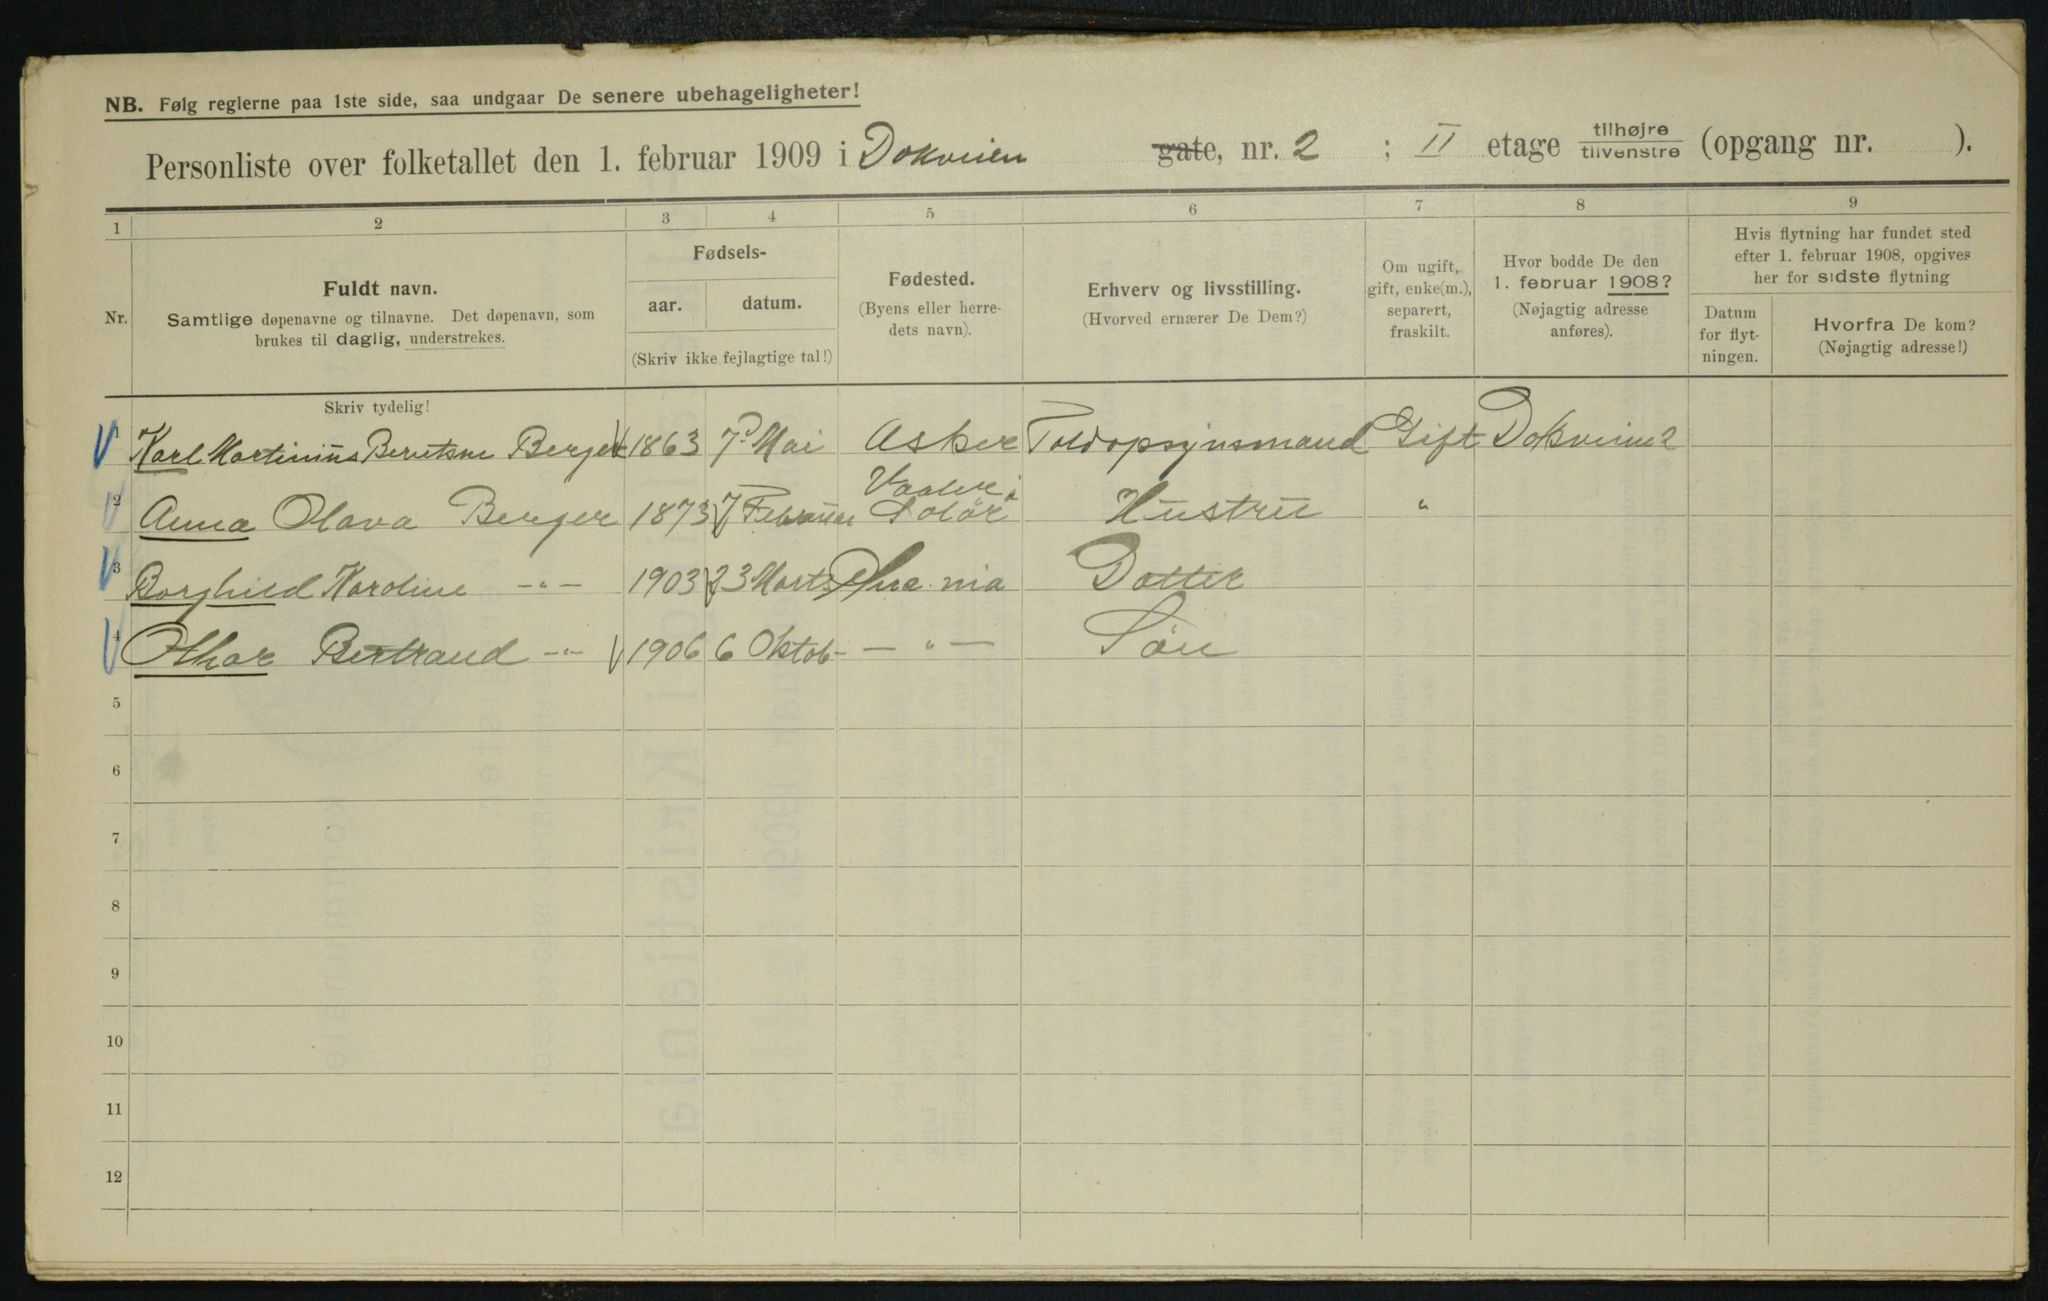 NB. Følg reglerne paa 1ste side, saa undgaar De senere ubehageligheter!
Personliste over folketallet den 1. februar 1909 i Dokveien gate, nr. 2 ; II etage tilhøjre tilvenstre (opgang nr. ).
1 2 3 4 5 6 7 8 9
Nr.
Fuldt navn.
Samtlige døpenavne og tilnavne. Det døpenavn, som
brukes til daglig, understrekes.
Fødsels-
aar. datum.
(Skriv ikke fejlagtige tal!)
Fødested.
(Byens eller herre-
dets navn).
Erhverv og livsstilling.
(Hvorved ernærer De Dem?)
Om ugift,
gift, enke(m.),
separert,
fraskilt.
Hvor bodde De den
1. februar 1908?
(Nøjagtig adresse
anføres).
Hvis flytning har fundet sted
efter 1. februar 1908, opgives
her for sidste flytning
Datum
for flyt-
ningen.
Hvorfra De kom?
(Nøjagtig adresse!)
Skriv tydelig!
Karl Martinius Berntsen Berger 1863 7d Mai Asker Toldopsynsmand Gift Dokveien 2
2 Anna Olava Berger 1873 7 Februar Vaaler i Solør Hustru "
3 Borghild Karoline -"- 1903 23 Marts Kra.nia Datter
4 Othar Bertrand -"- 1906 6 Oktob - - " - Søn
5
6
7
8
9
10
11
12